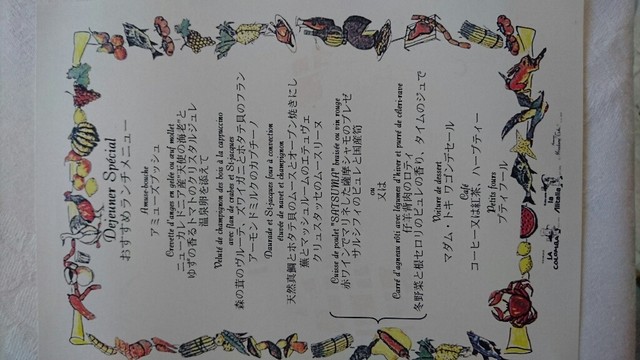 Déjeuner Spécial
おすすめランチメニュー
Amuse-bouche
アミューズブッシュ
Crevettes d'anges en gelée ou avec œuf mollet
ニューカレドニア産"天使の海老"と
ゆずの香るトマトのクリスタルジュレ
温泉卵を添えて
Velouté de champignon des bois à la cappuccino
avec flan de crabes et St-jacques
森の茸のヴルーテ、ズワイガニとホタテ貝のフラン
アーモンドミルクのカプチーノ
Daurade et St-jacques four à convection
étuvée de navet et champignon
天然真鯛とホタテ貝のムースのオーブン焼きにし
蕪とマッシュルームのエテュヴェ
クリュスタッセのムースリーヌ
Cuisse de poulet "SATSUMA" braisée au vin rouge
赤ワインでマリネした薩摩シャモのブレゼ
サルシフィのピュレと国産筍
ou
又は
Carré d'agneau rôti avec légumes d'hiver et purée de céleri-rave
仔羊背肉のロティ
冬野菜と根セロリのピュレの香り、タイムのジュで
Voiture de dessert
マダム・トキ ワゴンデセール
Café
コーヒー又は紅茶、ハーブティー
Petits fours
プティフール
LA
COLOMBA